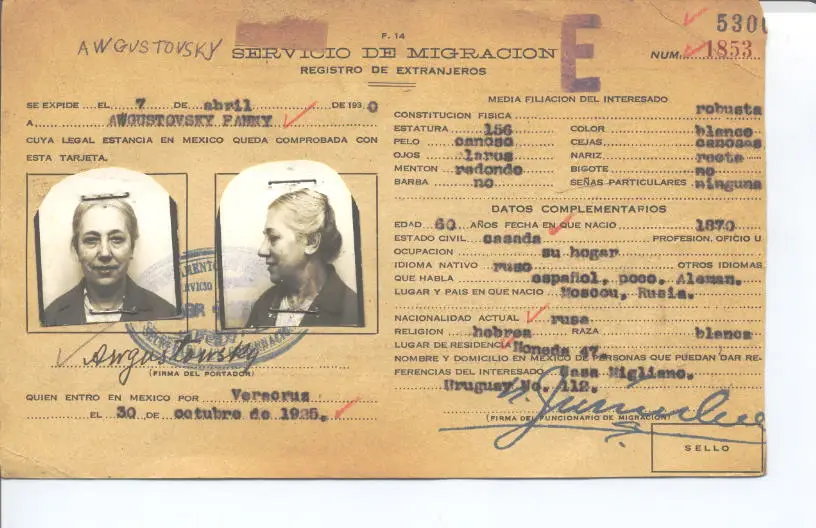 F. 14
AWGUSTOVSKY
SERVICIO DE MIGRACION
REGISTRO DE EXTRANJEROS
E
5300
NUM. 1853
SE EXPIDE EL 7 DE abril DE 1930
A AWGUSTOVSKY FANNY
CUYA LEGAL ESTANCIA EN MEXICO QUEDA COMPROBADA CON
ESTA TARJETA.
Awgustowsky
(FIRMA DEL PORTADOR)
QUIEN ENTRO EN MEXICO POR Veracruz
EL 30 DE octubre de 1925.
MEDIA FILIACION DEL INTERESADO
CONSTITUCION FISICA robusta
ESTATURA 156 COLOR blanco
PELO canoso CEJAS canosas
OJOS claros NARIZ recta
MENTON redondo BIGOTE no
BARBA no SEÑAS PARTICULARES ninguna
DATOS COMPLEMENTARIOS
EDAD 60 AÑOS FECHA EN QUE NACIO 1870
ESTADO CIVIL casada PROFESION, OFICIO U
OCUPACION su hogar
IDIOMA NATIVO ruso OTROS IDIOMAS
QUE HABLA español, poco, Aleman.
LUGAR Y PAIS EN QUE NACIO Moscou, Rusia.
NACIONALIDAD ACTUAL rusa
RELIGION hebrea RAZA blanca
LUGAR DE RESIDENCIA Moneda 47.
NOMBRE Y DOMICILIO EN MEXICO DE PERSONAS QUE PUEDAN DAR RE-
FERENCIAS DEL INTERESADO Casa Migliano.
Uruguay No. 112.
(FIRMA DEL FUNCIONARIO DE MIGRACION)
SELLO